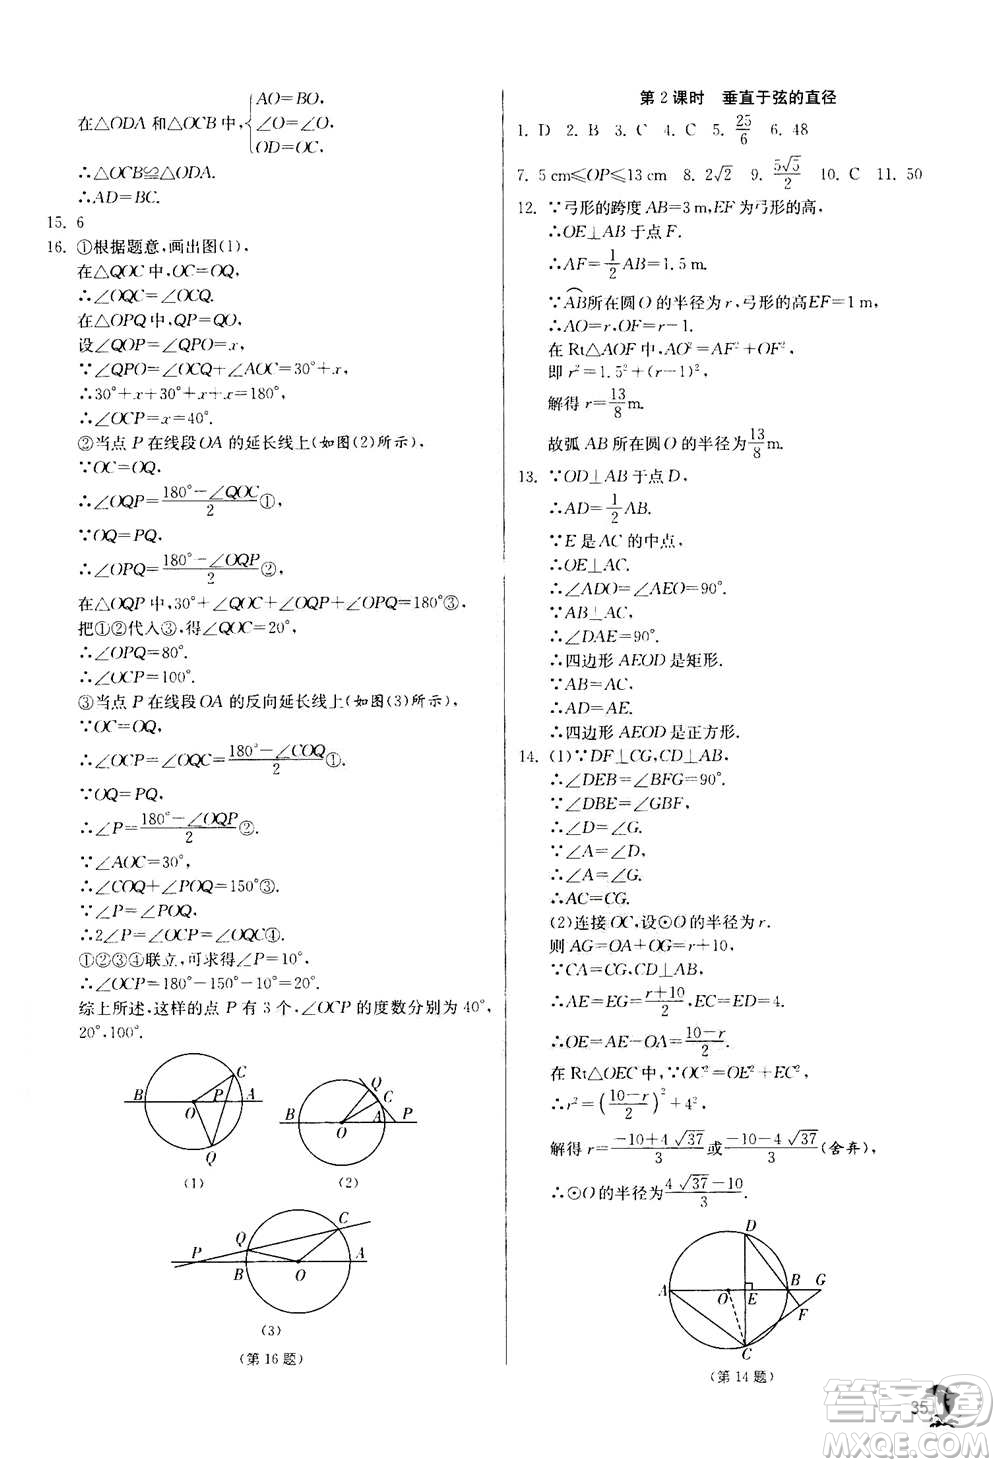 在△ODA 和△OCB 中,{AO=BO, ∠O=∠O, OD=OC.
∴△OCB≌△ODA.
∴AD=BC.
15. 6
16. ①根据题意,画出图(1),
在△QOC 中,OC=OQ,
∴∠OQC=∠OCQ.
在△OPQ 中,QP=QO,
设∠QOP=∠QPO=x,
∵∠QPO=∠OCQ+∠AOC=30°+x,
∴30°+x+30°+x+x=180°,
∴∠OCP=x=40°.
②当点 P 在线段OA 的延长线上(如图(2)所示),
∵OC=OQ,
∴∠OQP=(180°-∠QOC)/2①,
∵OQ=PQ,
∴∠OPQ=(180°-∠OQP)/2②,
在△OQP 中,30°+∠QOC+∠OQP+∠OPQ=180°③,
把①②代入③,得∠QOC=20°,
∴∠OPQ=80°.
∴∠OCP=100°.
③当点 P 在线段OA 的反向延长线上(如图(3)所示),
∵OC=OQ,
∴∠OCP=∠OQC=(180°-∠COQ)/2①.
∵OQ=PQ,
∴∠P=(180°-∠OQP)/2②.
∵∠AOC=30°,
∴∠COQ+∠POQ=150°③.
∵∠P=∠POQ,
∴2∠P=∠OCP=∠OQC④.
①②③④联立,可求得∠P=10°.
∴∠OCP=180°-150°-10°=20°.
综上所述,这样的点 P 有 3 个,∠OCP 的度数分别为 40°,
20°,100°.
B O P A C Q
(1)
B O A P C Q
(2)
P Q B O A C
(3)
(第 16 题)
第 2 课时 垂直于弦的直径
1. D 2. B 3. C 4. C 5. 25/6 6. 48
7. 5 cm≤OP≤13 cm 8. 2√2 9. 5√5/2 10. C 11. 50
12. ∵弓形的跨度 AB=3 m,EF 为弓形的高,
∴OE⊥AB 于点 F.
∴AF=1/2AB=1.5 m.
∵AB⌒所在圆 O 的半径为 r,弓形的高EF=1 m,
∴AO=r,OF=r-1.
在 Rt△AOF 中,AO²=AF²+OF²,
即 r²=1.5²+(r-1)²,
解得 r=13/8 m.
故弧 AB 所在圆 O 的半径为13/8 m.
13. ∵OD⊥AB 于点 D,
∴AD=1/2AB.
∵E 是 AC 的中点,
∴OE⊥AC.
∴∠ADO=∠AEO=90°.
∵AB⊥AC,
∴∠DAE=90°.
∴四边形 AEOD 是矩形.
∵AB=AC,
∴AD=AE.
∴四边形 AEOD 是正方形.
14. (1)∵DF⊥CG,CD⊥AB,
∴∠DEB=∠BFG=90°.
∵∠DBE=∠GBF,
∴∠D=∠G.
∵∠A=∠D,
∴∠A=∠G.
∴AC=CG.
(2)连接 OC,设⊙O 的半径为 r.
则 AG=OA+OG=r+10,
∵CA=CG,CD⊥AB,
∴AE=EG=(r+10)/2,EC=ED=4.
∴OE=AE-OA=(10-r)/2.
在 Rt△OEC 中,∵OC²=OE²+EC²,
∴r²=((10-r)/2)²+4².
解得 r=(-10+4√37)/3或(-10-4√37)/3(舍弃),
∴⊙O 的半径为(4√37-10)/3.
A O E B G D F C
(第 14 题)
35
答案圈
MXQE.COM